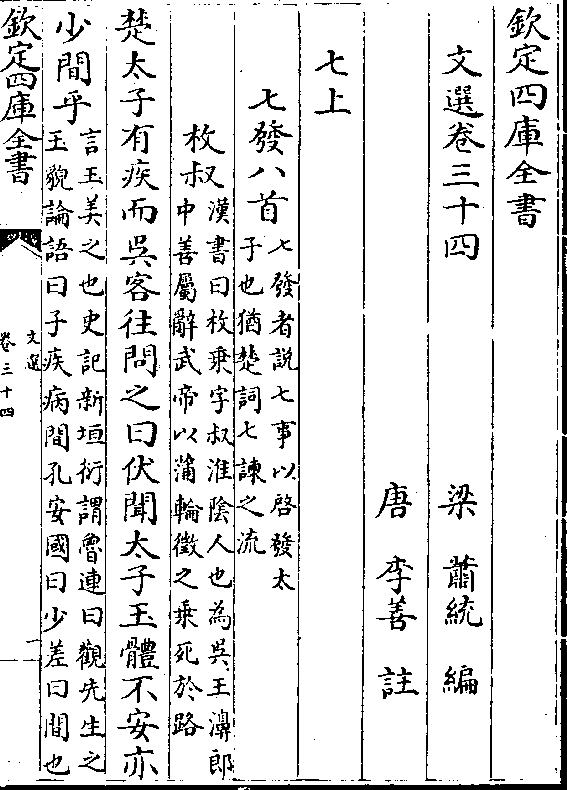 欽定四庫全書
文選卷三十四
梁 蕭統 編
唐 李善 註
七上
七發八首
七發者說七事以啓發太
子也猶楚詞七諫之流
枚叔
漢書曰枚乗字叔淮陰人也為吳王濞郎
中善屬辭武帝以蒲輪徵之乗死於路
楚太子有疾而吳客往問之曰伏聞太子玉體不安亦
少間乎
言玉美之也史記新垣衍謂魯連曰觀先生之
玉貌論語曰子疾病間孔安國曰少差曰間也
欽定四庫全書
文選
卷三十四
一